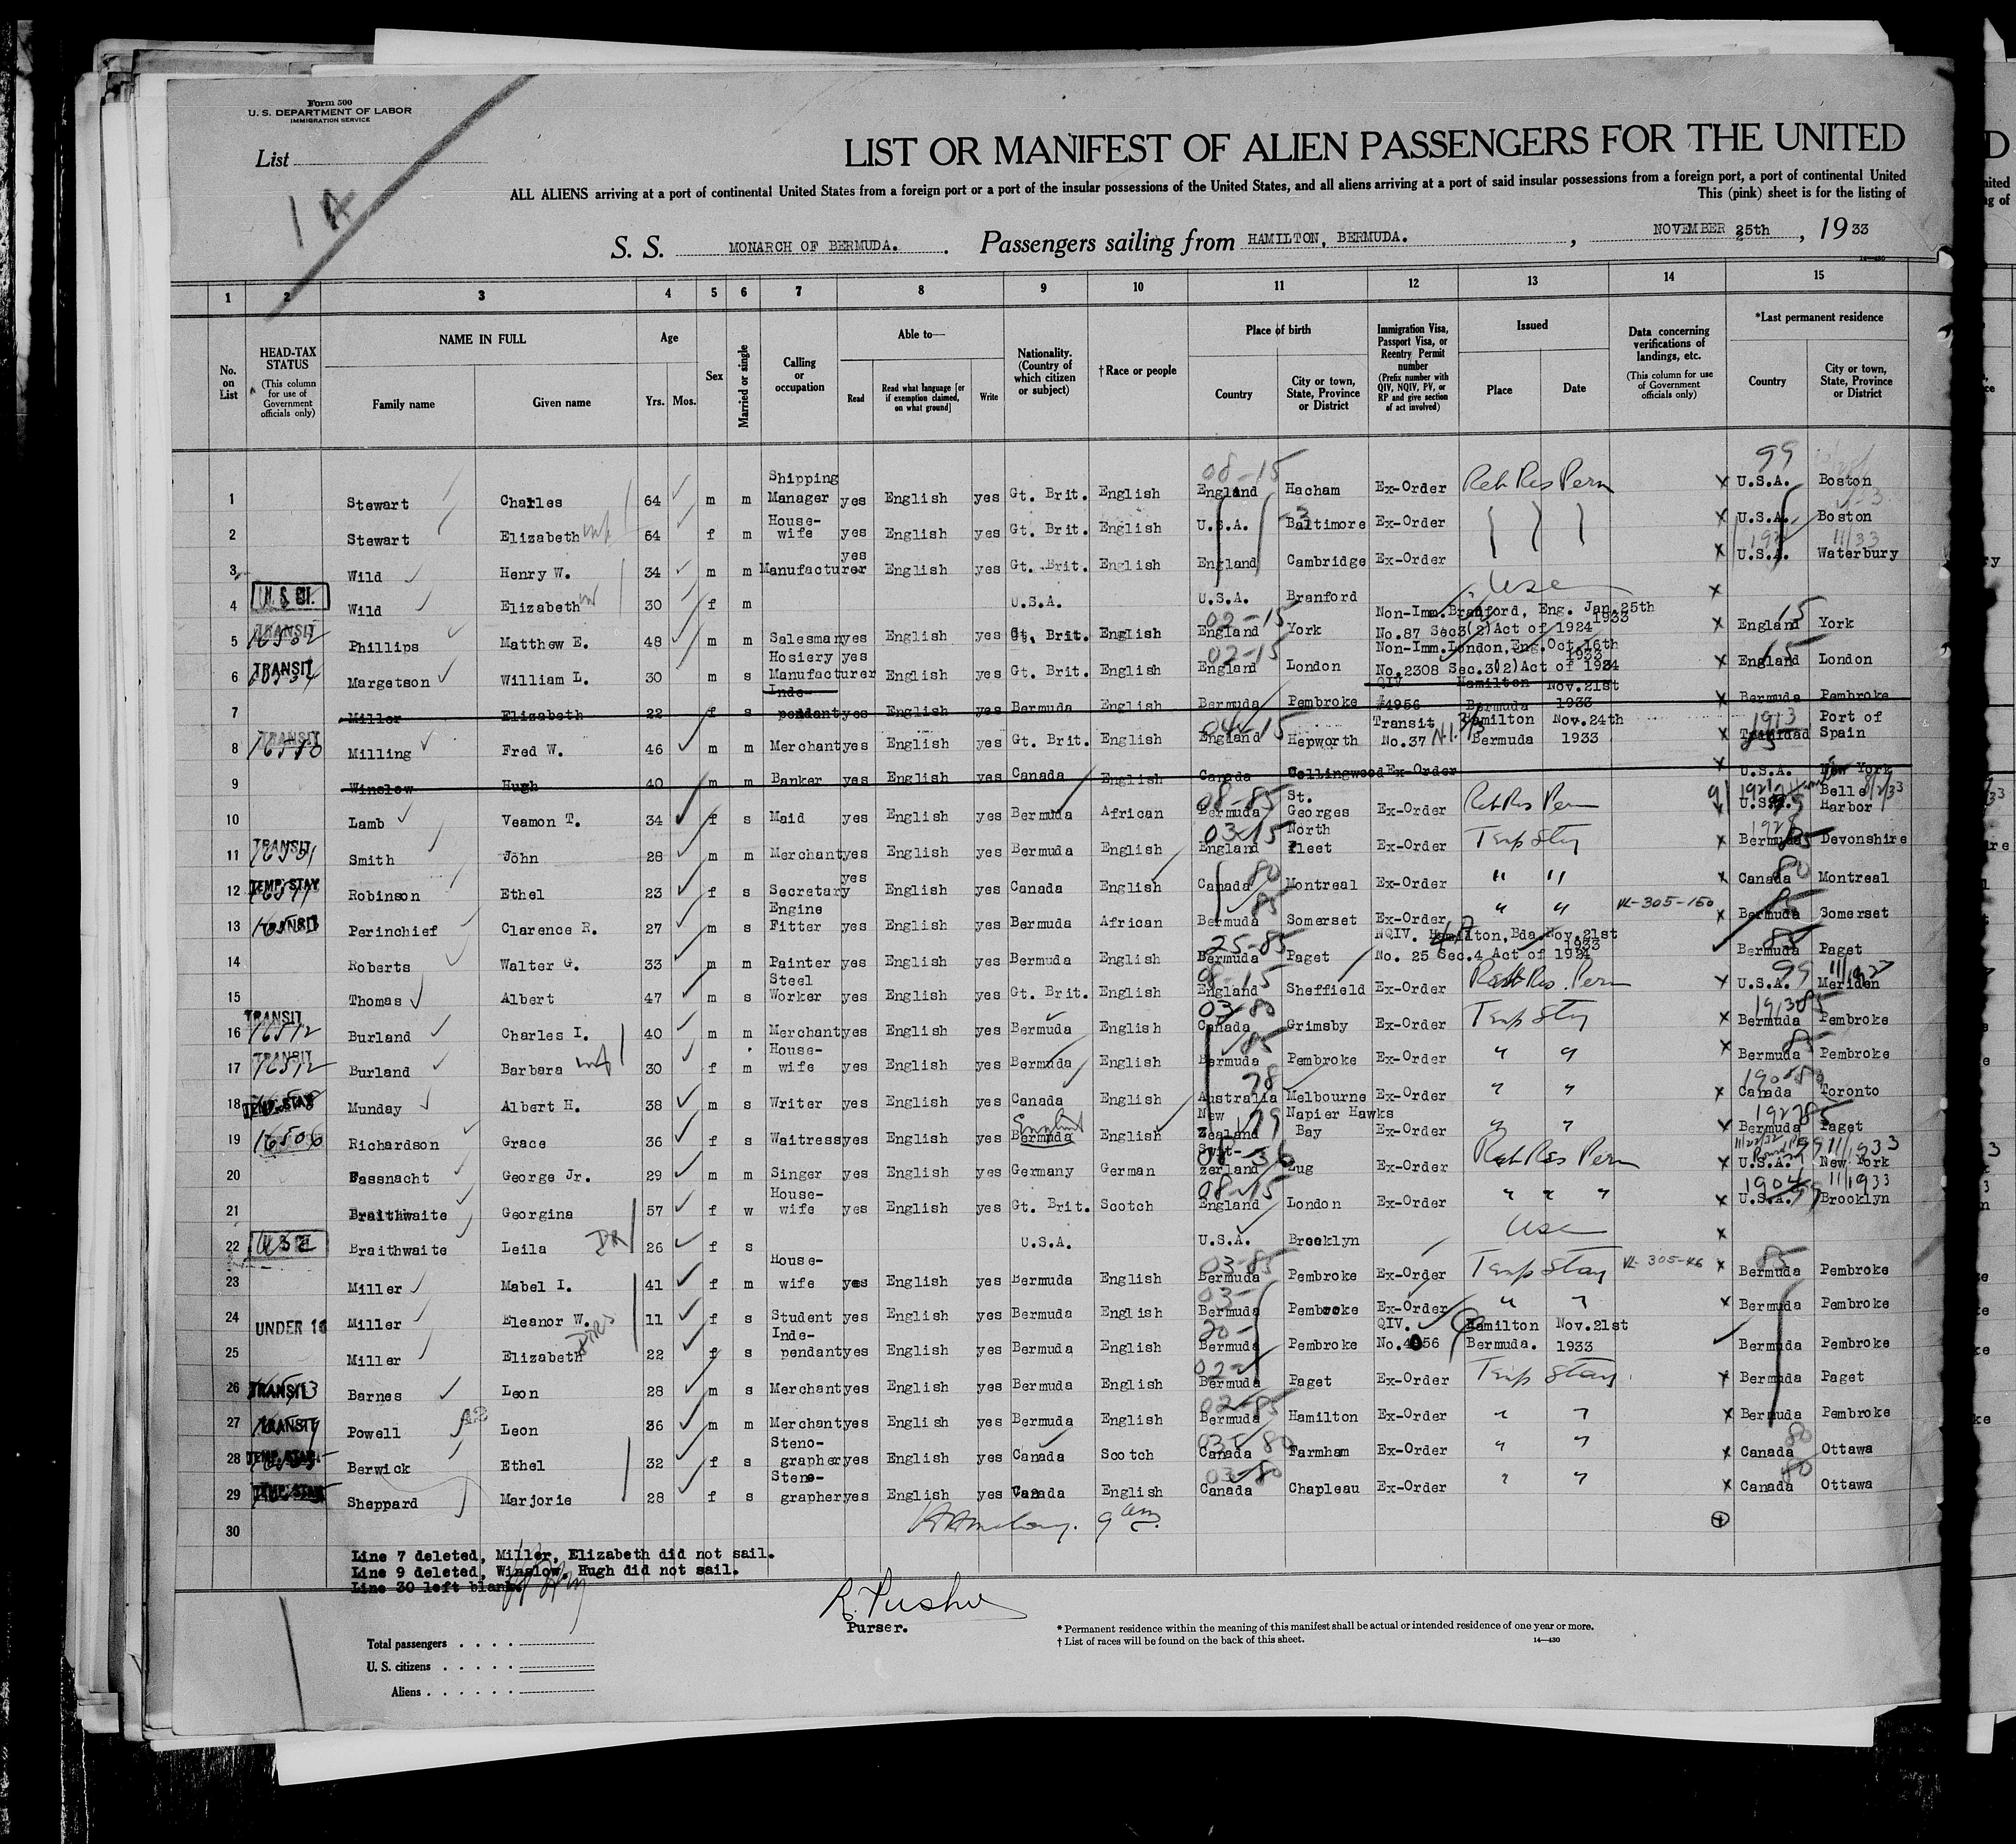 Form 500
U. S. DEPARTMENT OF LABOR
IMMIGRATION SERVICE
List
1 A
LIST OR MANIFEST OF ALIEN PASSENGERS FOR THE UNITED
ALL ALIENS arriving at a port of continental United States from a foreign port or a port of the insular possessions of the United States, and all aliens arriving at a port of said insular possessions from a foreign port, a port of continental United
This (pink) sheet is for the listing of
S. S. MONARCH OF BERMUDA. Passengers sailing from HAMILTON, BERMUDA. , NOVEMBER 25th , 19 33
1 2 3 4 5 6 7 8 9 10 11 12 13 14 15
No. on List
HEAD-TAX STATUS (This column for use of Government officials only)
NAME IN FULL
Family name Given name
Age
Yrs. Mos.
Sex
Married or single
Calling or occupation
Able to—
Read Read what language [or if exemption claimed, on what ground] Write
Nationality. (Country of which citizen or subject)
†Race or people
Place of birth
Country City or town, State, Province or District
Immigration Visa, Passport Visa, or Reentry Permit number (Prefix number with QIV, NQIV, PV, or RP and give section of act involved)
Issued
Place Date
Data concerning verifications of landings, etc. (This column for use of Government officials only)
*Last permanent residence
Country City or town, State, Province or District
1 Stewart Charles 64 m m Shipping Manager yes English yes Gt. Brit. English 08-15 England Hacham Ex-Order Ret Res Perm x 99 U.S.A. Boston
2 Stewart Elizabeth 64 f m House-wife yes English yes Gt. Brit. English U.S.A. Baltimore Ex-Order x U.S.A. Boston
3 Wild Henry W. 34 m m Manufacturer yes English yes Gt. Brit. English England Cambridge Ex-Order x U.S.A. Waterbury 11/33
4 Wild Elizabeth 30 f m U.S.A. U.S.A. Branford USC x
5 TRANSIT Phillips Matthew E. 48 m m Salesman yes English yes Gt. Brit. English 02-15 England York Non-Imm. Bradford, Eng. Jan. 25th 1933 No.87 Sec3(2)Act of 1924 x England 15 York
6 TRANSIT Margetson William L. 30 m s Hosiery Manufacturer yes English yes Gt. Brit. English 02-15 England London Non-Imm. London, Eng. Oct. 16th 1933 No.2308 Sec.3(2)Act of 1924 x England 15 London
7 Miller Elizabeth 22 f s Inde-pendant yes English yes Bermuda English Bermuda Pembroke QIV #4956 Hamilton Bermuda Nov. 21st 1933 x Bermuda Pembroke
8 TRANSIT Milling Fred W. 46 m m Merchant yes English yes Gt. Brit. English 04-15 England Hepworth Transit No.37 Hamilton Bermuda Nov. 24th 1933 x Trinidad Port of Spain
9 Winslow Hugh 40 m m Banker yes English yes Canada English Canada Collingwood Ex-Order x U.S.A. New York
10 Lamb Veamon T. 34 f s Maid yes English yes Bermuda African 08-85 Bermuda St. Georges Ex-Order Ret Res Perm U.S.A. Belle Harbor
11 TRANSIT Smith John 28 m m Merchant yes English yes Bermuda English 03-15 England North Fleet Ex-Order Temp Stay x Bermuda Devonshire
12 TEMP. STAY Robinson Ethel 23 f s Secretary yes English yes Canada English Canada 80 Montreal Ex-Order " " x Canada 80 Montreal
13 Perinchief Clarence R. 27 m s Engine Fitter yes English yes Bermuda African Bermuda 85 Somerset Ex-Order " " VL-305-150 x Bermuda Somerset
14 Roberts Walter G. 33 m m Painter yes English yes Bermuda English 25-85 Bermuda Paget NQIV. Hamilton, Bda Nov. 21st 1933 No. 25 Sec.4 Act of 1924 Bermuda 85 Paget
15 Thomas Albert 47 m s Steel Worker yes English yes Gt. Brit. English 08-15 England Sheffield Ex-Order Ret Res. Perm x 99 U.S.A. Meriden
16 TRANSIT 16512 Burland Charles I. 40 m m Merchant yes English yes Bermuda English 03-80 Canada Grimsby Ex-Order Temp Stay x Bermuda Pembroke
17 TRANSIT 16512 Burland Barbara wf 30 f m House-wife yes English yes Bermuda English 85 Bermuda Pembroke Ex-Order " " x Bermuda 85 Pembroke
18 TEMP. STAY Munday Albert H. 38 m s Writer yes English yes Canada English 78 Australia Melbourne Ex-Order " " x Canada Toronto
19 16506 Richardson Grace 36 f s Waitress yes English yes Bermuda English New Zealand 79 Napier Hawks Bay Ex-Order " " x Bermuda Paget
20 Fassnacht George Jr. 29 m m Singer yes English yes Germany German Swit-zerland Zug Ex-Order Ret Res Perm x U.S.A. New York
21 Braithwaite Georgina 57 f w House-wife yes English yes Gt. Brit. Scotch 08-15 England London Ex-Order " " " x 1904 U.S.A. 11/1933 Brooklyn
22 Braithwaite Leila 26 f s U.S.A. U.S.A. Brooklyn USC x
23 Miller Mabel I. 41 f m House-wife yes English yes Bermuda English 03-85 Bermuda Pembroke Ex-Order Temp Stay VL-305-46 x 85 Bermuda Pembroke
24 UNDER 16 Miller Eleanor W. 11 f s Student yes English yes Bermuda English 03- Bermuda Pembroke Ex-Order " " x Bermuda Pembroke
25 Miller Elizabeth 22 f s Inde-pendant yes English yes Bermuda English 20- Bermuda Pembroke QIV. No.4956 Hamilton Bermuda. Nov. 21st 1933 Bermuda Pembroke
26 TRANSIT Barnes Leon 28 m s Merchant yes English yes Bermuda English 02- Bermuda Paget Ex-Order Temp Stay x Bermuda Paget
27 TRANSIT Powell Leon 36 m m Merchant yes English yes Bermuda English 02-85 Bermuda Hamilton Ex-Order " " x Bermuda Pembroke
28 TEMP. STAY Berwick Ethel 32 f s Steno-grapher yes English yes Canada Scotch 03-80 Canada Farmham Ex-Order " " x Canada 80 Ottawa
29 TEMP. STAY Sheppard Marjorie 28 f s Steno-grapher yes English yes Canada English 03-80 Canada Chapleau Ex-Order " " x Canada 80 Ottawa
30
Line 7 deleted, Miller, Elizabeth did not sail.
Line 9 deleted, Winslow, Hugh did not sail.
Line 30 left blank.
Purser.
Total passengers
U. S. citizens
Aliens
* Permanent residence within the meaning of this manifest shall be actual or intended residence of one year or more.
† List of races will be found on the back of this sheet.
14—430